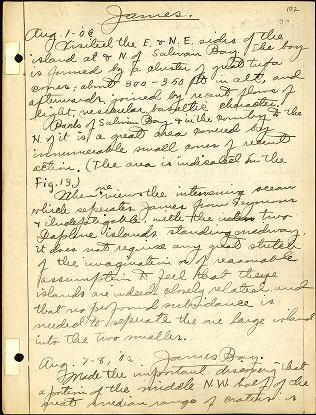 James.
102
Aug. 1-06
Visited the E. & N.E. sides of the
island at & N. of Sulivan Bay. The bay
is formed by a cluster of great tufa
cones, about 300-350 ft in alt., and
afterwards joined by recent flows of
light, vesicular basaltic character.
Back of Sulivan Bay & in the country to the
N. of it is a great area covered by
innumerable small cones of recent
action. (The area is indicated in the
Fig. 13.)
When one views the intervening ocean
which seperates James from Seymour
& Indefatigable, with the two
Daphne islands standing midway,
it does not require any great stretch
of the imagination or of reasonable
assumption to feel that these
islands are indeed closely related and
that no profound subsidence is
needed to seperate the one large island
into the two smaller.
Aug. 7-8, '06. James Bay.
Made the important discovery that
a portion of the middle N.W. half of the
great median range of craters, is